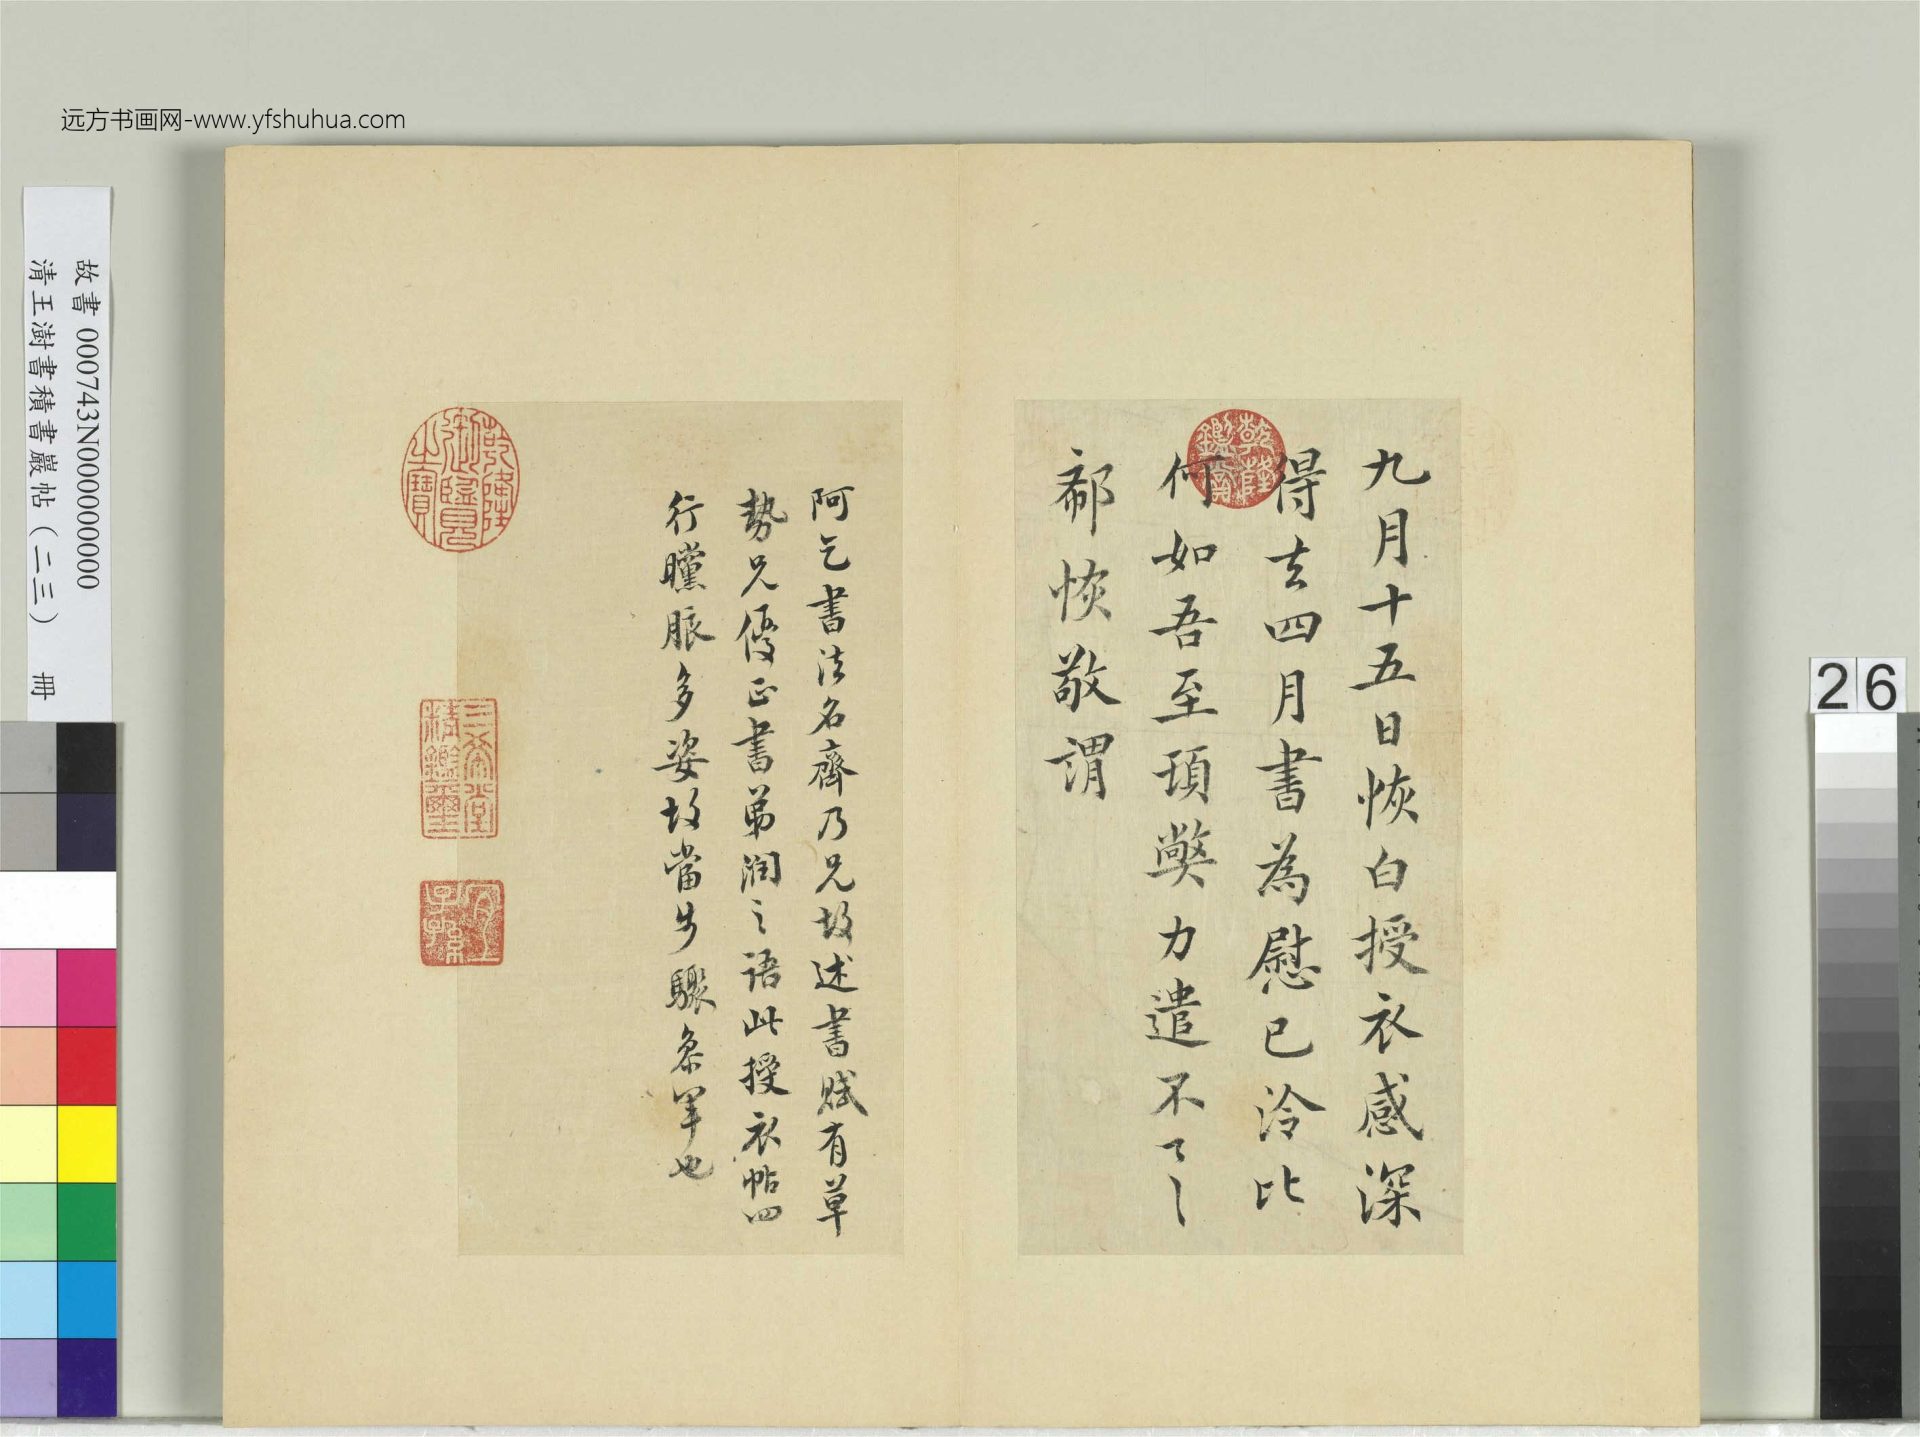 远方书画网-www.yfshuhua.com
故書 000743N000000000
清王澍書積書巖帖(二三) 冊
26
九月十五日恢白授衣感深
得去四月書為慰已冷比
何如吾至頓弊力遣不一一
郗恢敬謂
乾隆鑑賞
阿乞書法名齊乃兄故述書賦有草
勢兄優正書弟潤之語此授衣帖四
行矘脈多姿故當步驟
也
乾隆御覽之寶
三希堂精鑑璽
宜子孫